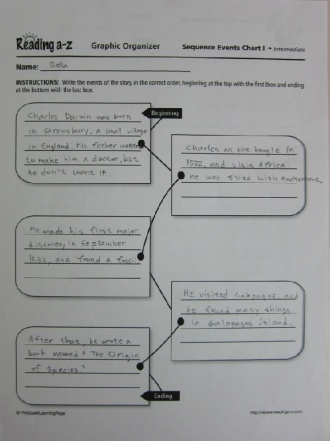 Reading a-z Graphic Organizer Sequence Events Chart 1 • Intermediate
Name: Bella
INSTRUCTIONS: Write the events of the story in the correct order, beginning at the top with the first box and ending
at the bottom with the last box.
Beginning
Charles Darwin was born
in Shrewsbury, a small village
in England. his father wanted
to make him a doctor, but
he don't want it.
Charles on the beagle in
and visit Africa
He was filled with
He made his first major
discovery in September
1832, and found a fossil
He visited Galapagos, and
he found many things
in Galapagos island.
After that, he wrote a
book named "The Origin
of Species"
Ending